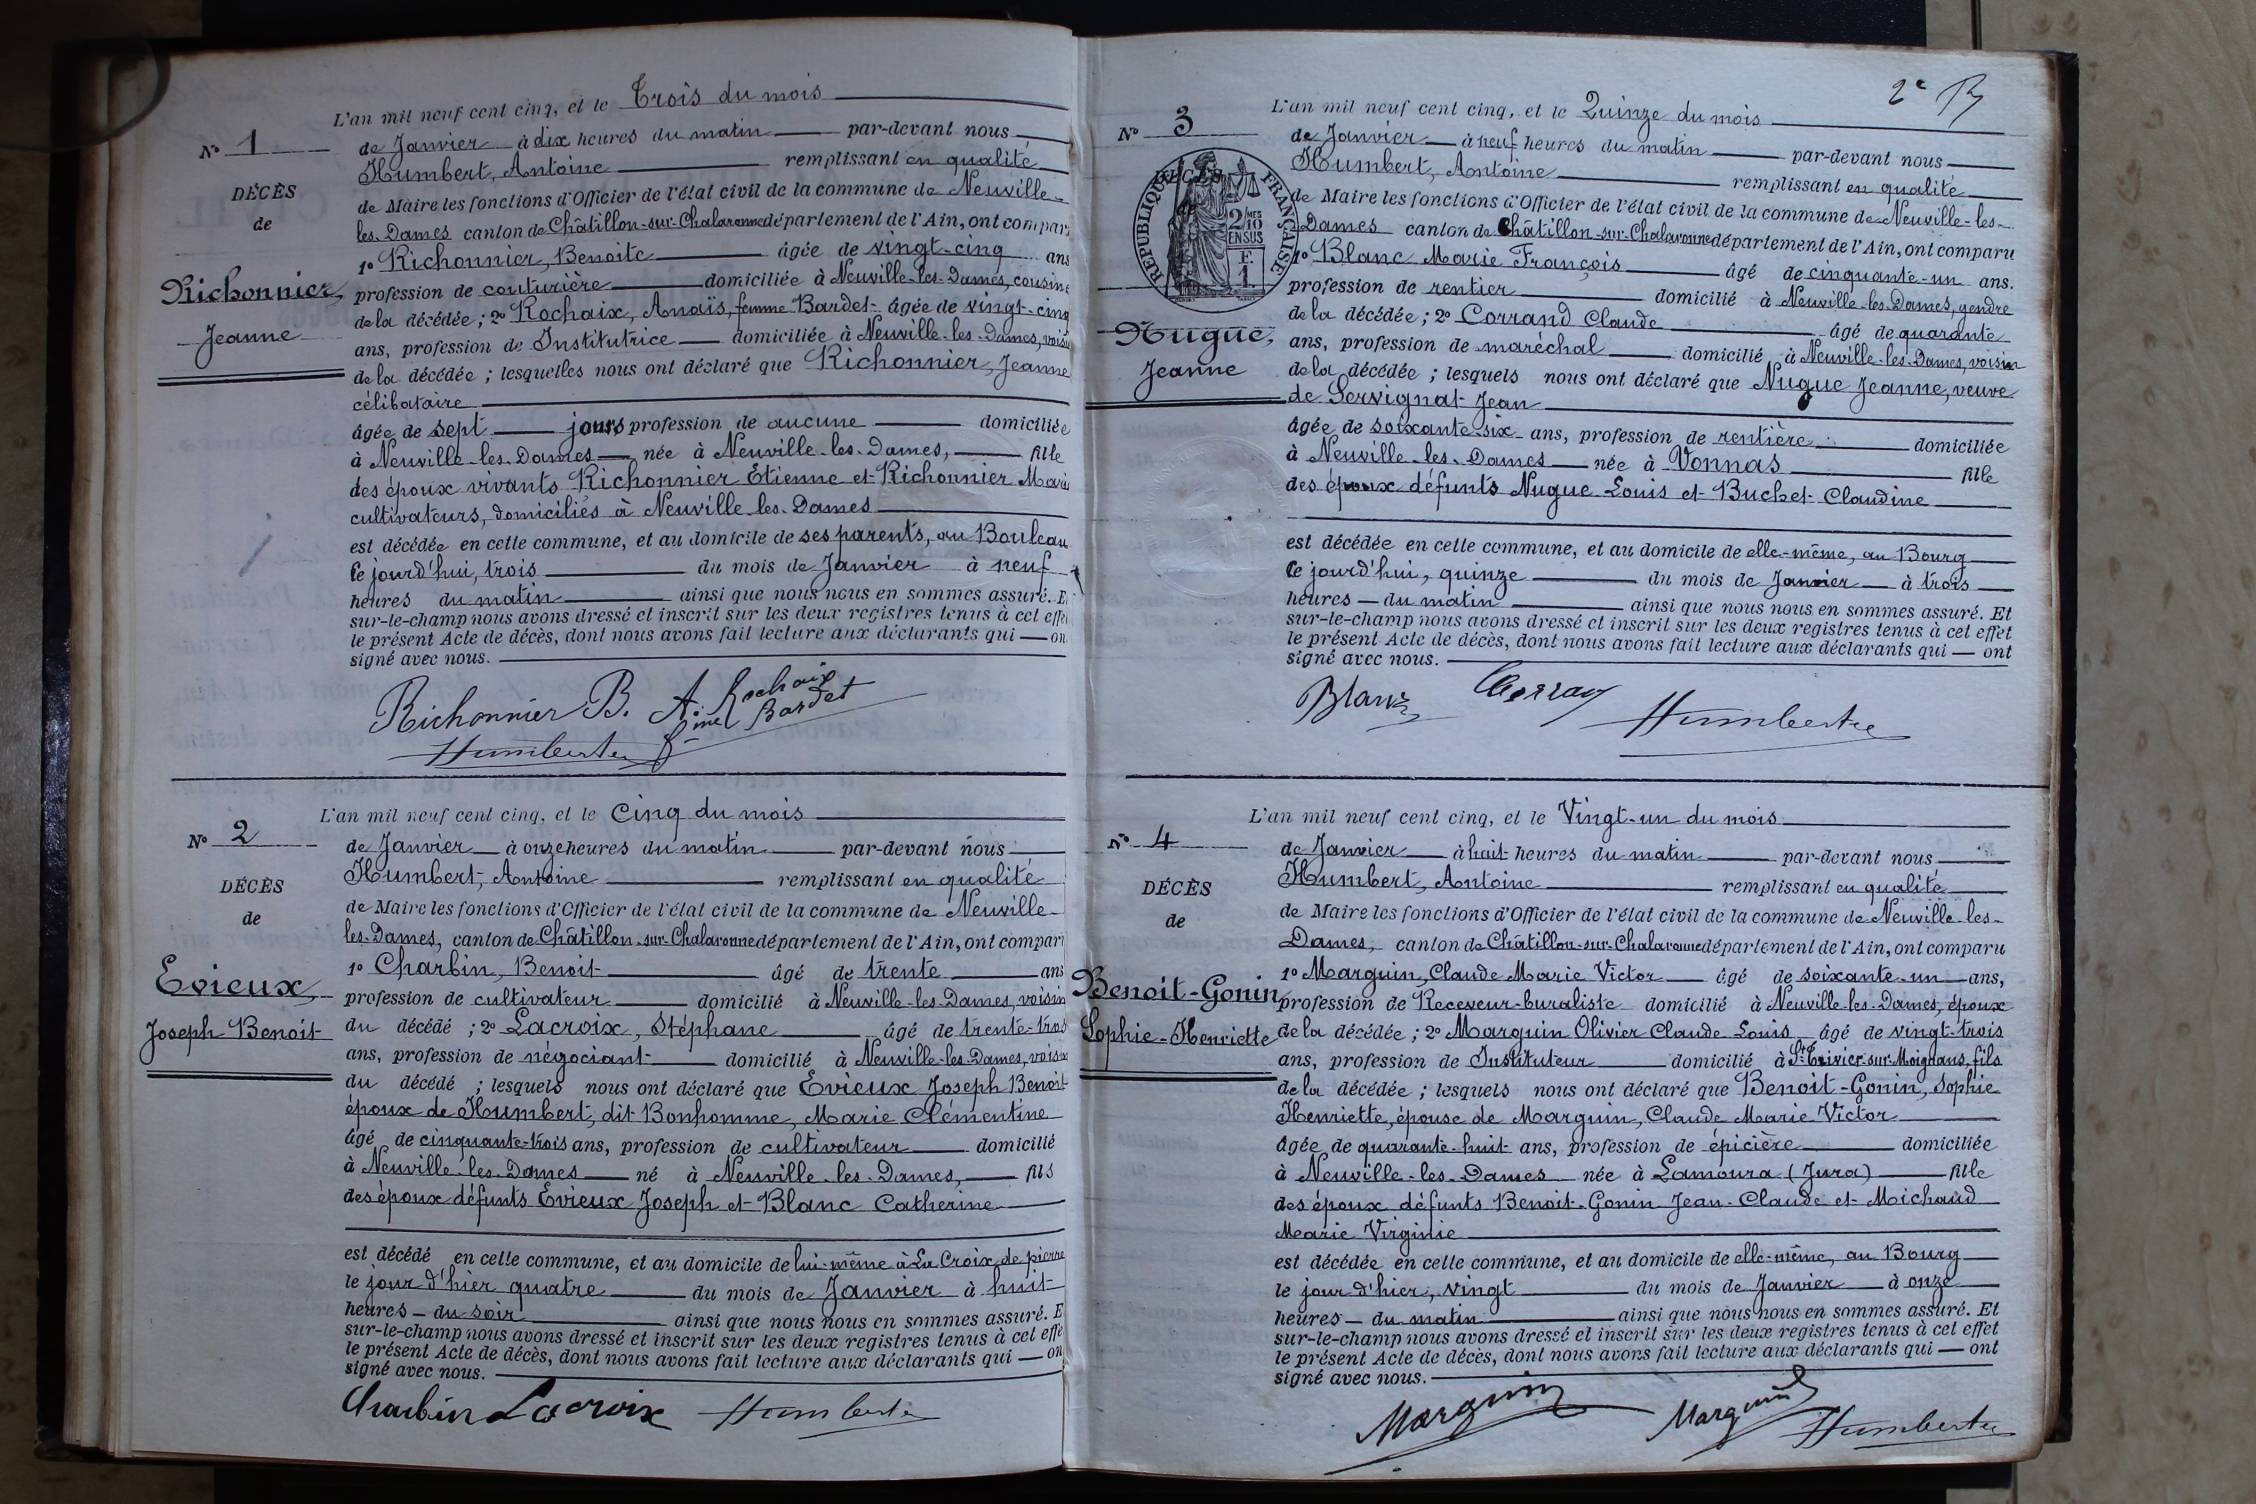 L'an mil neuf cent cinq, et le Trois du mois
N° 1
de Janvier à dix heures du matin par-devant nous
Humbert, Antoine remplissant en qualité
DÉCÈS
de Maire les fonctions d'Officier de l'état civil de la commune de Neuville-
de
les-Dames canton de Châtillon-sur-Chalaronne département de l'Ain, ont compar
1° Richonnier, Benoite âgée de vingt-cinq ans
Richonnier,
profession de couturière domiciliée à Neuville-les-Dames, cousine
de la décédée ; 2° Rochaix, Anaïs, femme Bardet âgée de vingt-cinq
Jeanne
ans, profession de Institutrice domiciliée à Neuville-les-Dames, voisi
de la décédée ; lesquelles nous ont déclaré que Richonnier, Jeanne
célibataire
âgée de sept jours profession de aucune domiciliée
à Neuville-les-Dames née à Neuville-les-Dames, fille
des époux vivants Richonnier Etienne et Richonnier Marie
cultivateurs, domiciliés à Neuville-les-Dames
est décédée en cette commune, et au domicile de ses parents, au Bouleau
Ce jourd'hui, trois du mois de Janvier à neuf
heures du matin ainsi que nous nous en sommes assuré. E
sur-le-champ nous avons dressé et inscrit sur les deux registres tenus à cet effe
le présent Acte de décès, dont nous avons fait lecture aux déclarants qui — on
signé avec nous.
Richonnier B. A. Rochaix
fme Bardet
Humbert
L'an mil neuf cent cinq, et le Cinq du mois
N° 2
de Janvier à onze heures du matin par-devant nous
Humbert, Antoine remplissant en qualité
DÉCÈS
de Maire les fonctions d'Officier de l'état civil de la commune de Neuville-
de
les-Dames, canton de Châtillon-sur-Chalaronne département de l'Ain, ont compar
1° Charbin, Benoit âgé de trente ans
Evieux
profession de cultivateur domicilié à Neuville-les-Dames, voisin
du décédé ; 2° Lacroix, Stéphane âgé de trente-trois
Joseph Benoit
ans, profession de négociant domicilié à Neuville-les-Dames, voisin
du décédé ; lesquels nous ont déclaré que Evieux Joseph Benoit
époux de Humbert, dit Bonhomme, Marie Clémentine
âgé de cinquante-trois ans, profession de cultivateur domicilié
à Neuville-les-Dames né à Neuville-les-Dames, fils
des époux défunts Evieux Joseph et Blanc Catherine
est décédé en cette commune, et au domicile de lui-même à La Croix de pierre
le jour d'hier quatre du mois de Janvier à huit
heures — du soir ainsi que nous nous en sommes assuré. E
sur-le-champ nous avons dressé et inscrit sur les deux registres tenus à cet effe
le présent Acte de décès, dont nous avons fait lecture aux déclarants qui — on
signé avec nous.
Charbin Lacroix Humbert
2e
L'an mil neuf cent cinq, et le Quinze du mois
N° 3
de Janvier à neuf heures du matin par-devant nous
Humbert, Antoine remplissant en qualité
DÉCÈS
RÉPUBLIQUE FRANÇAISE
2/10 MES
EN SUS
F.
1.
de Maire les fonctions d'Officier de l'état civil de la commune de Neuville-les-
Dames canton de Châtillon-sur-Chalaronne département de l'Ain, ont comparu
1° Blanc Marie François âgé de cinquante-un ans.
profession de rentier domicilié à Neuville-les-Dames, gendre
de la décédée ; 2° Corrand Claude âgé de quarante
Nugue,
ans, profession de maréchal domicilié à Neuville-les-Dames, voisin
Jeanne
de la décédée ; lesquels nous ont déclaré que Nugue Jeanne, veuve
de Servignat Jean
âgée de soixante-six ans, profession de rentière domiciliée
à Neuville-les-Dames née à Vonnas fille
des époux défunts Nugue Louis et Buchet Claudine
est décédée en cette commune, et au domicile de elle-même, au Bourg
Ce jourd'hui, quinze du mois de Janvier à trois
heures — du matin ainsi que nous nous en sommes assuré. Et
sur-le-champ nous avons dressé et inscrit sur les deux registres tenus à cet effet
le présent Acte de décès, dont nous avons fait lecture aux déclarants qui — ont
signé avec nous.
Blanc Humbert
L'an mil neuf cent cinq, et le Vingt-un du mois
N° 4
de Janvier à huit heures du matin par-devant nous
Humbert, Antoine remplissant en qualité
DÉCÈS
de Maire les fonctions d'Officier de l'état civil de la commune de Neuville-les-
de
Dames, canton de Châtillon-sur-Chalaronne département de l'Ain, ont comparu
1° Marguin, Claude Marie Victor âgé de soixante-un ans,
Benoit-Gonin
profession de Receveur-buraliste domicilié à Neuville-les-Dames, époux
Sophie-Henriette
de la décédée ; 2° Marguin Olivier Claude Louis âgé de vingt-trois
ans, profession de Instituteur domicilié à St Trivier-sur-Moignans, fils
de la décédée ; lesquels nous ont déclaré que Benoit-Gonin, Sophie
Henriette, épouse de Marguin, Claude Marie Victor
âgée de quarante-huit ans, profession de épicière domiciliée
à Neuville-les-Dames née à Lamoura (Jura) fille
des époux défunts Benoit-Gonin Jean-Claude et Michaud
Marie Virginie
est décédée en cette commune, et au domicile de elle-même, au Bourg
le jour d'hier, vingt du mois de Janvier à onze
heures — du matin ainsi que nous nous en sommes assuré. Et
sur-le-champ nous avons dressé et inscrit sur les deux registres tenus à cet effet
le présent Acte de décès, dont nous avons fait lecture aux déclarants qui — ont
signé avec nous.
Marguin Marguin Humbert